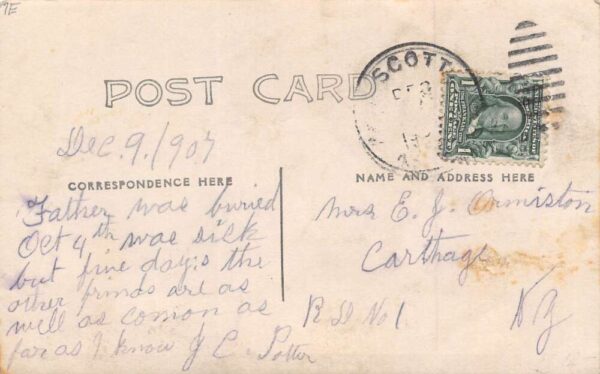 POST CARD
SCOTT
DEC
Dec. 9, 1907
CORRESPONDENCE HERE
NAME AND ADDRESS HERE
Father was buried
Oct 4th was sick
but five day's the
other frinds are as
well as comon as
far as I know J C. Potter
Mrs E. J. Ormiston
Carthage
R D No 1
N Y